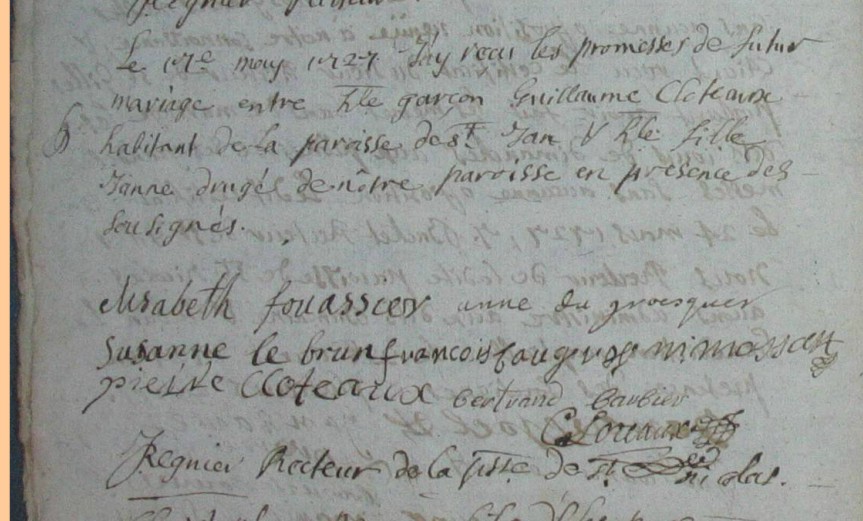 Le 17e may 1727 J'ay recu les promesses de futur
mariage entre hle garçon Guillaume Cloteaux
habitant de la paroisse de st Jan & hle fille
Janne drugés de nôtre paroisse en présence des
sousignés.
elisabeth fouasscer anne du groesquer
Susanne le brun francois
pierre Cloteaux bertrand barbier
J Regnier Recteur de la psse de st nicolas.